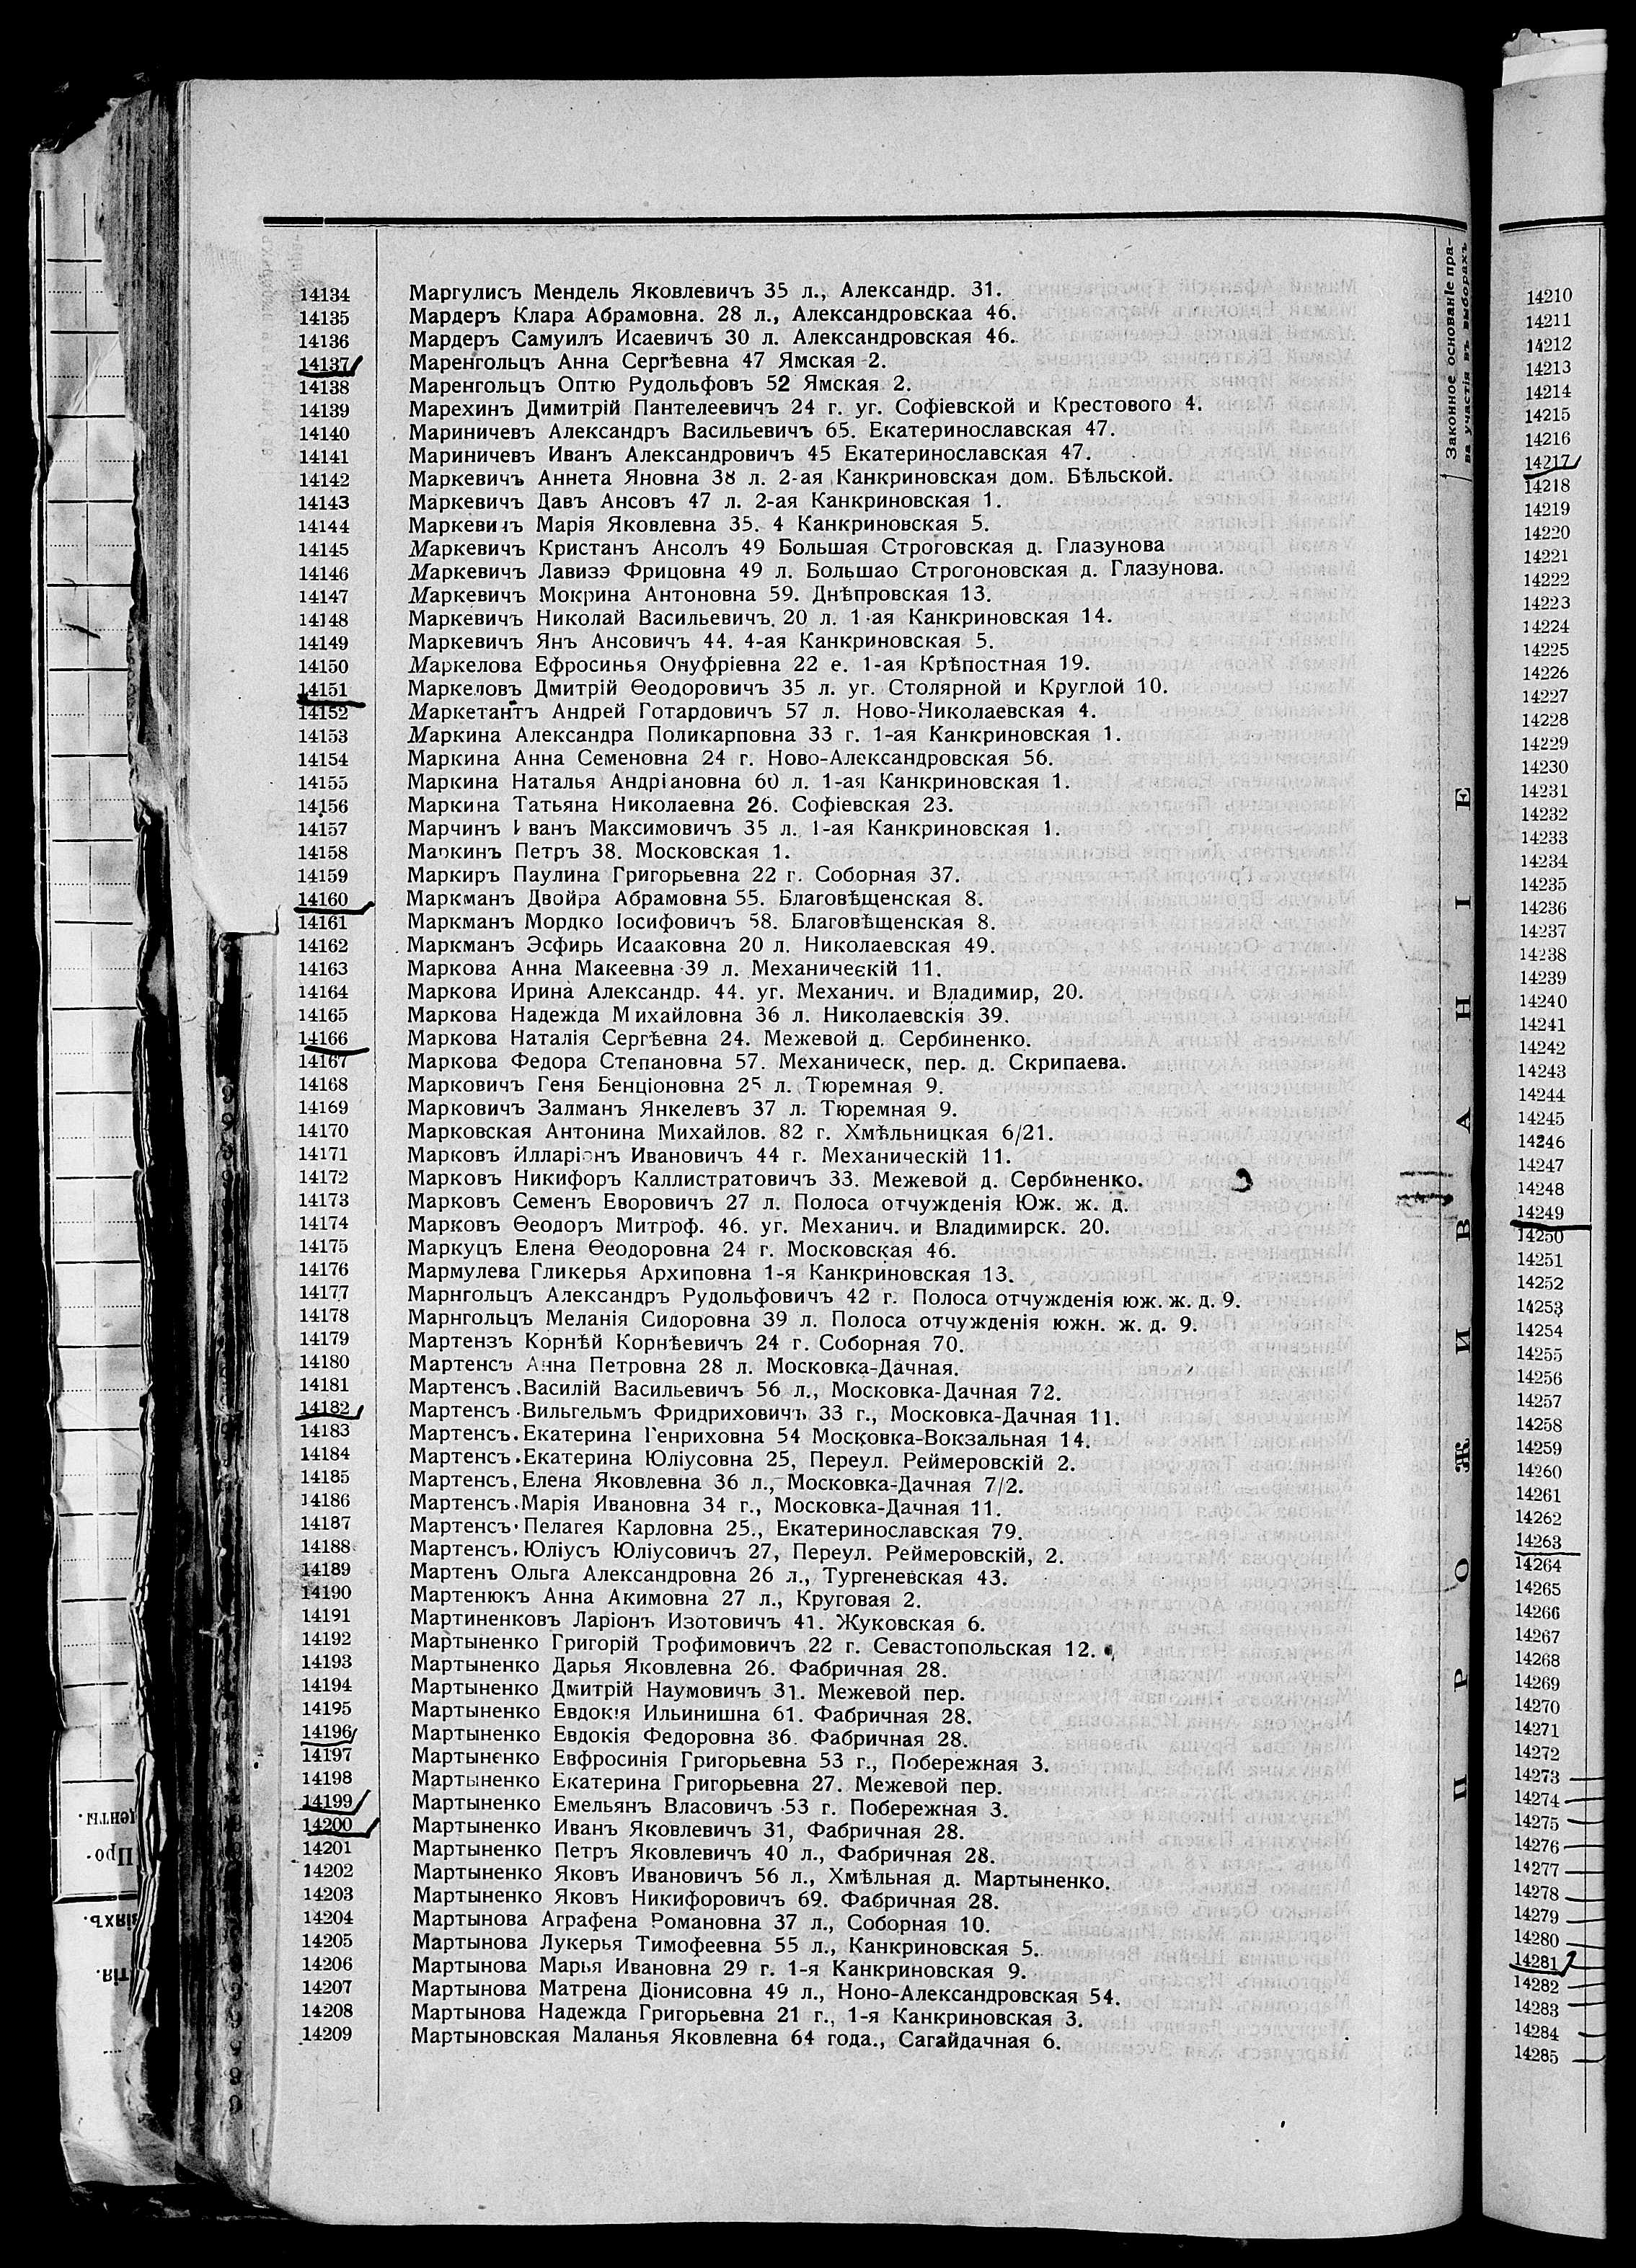 14134 Маргулисъ Мендель Яковлевичъ 35 л., Александр. 31.
14135 Мардеръ Клара Абрамовна. 28 л., Александровскаа 46.
14136 Мардеръ Самуилъ Исаевичъ 30 л. Александровская 46.
14137 Маренгольцъ Анна Сергѣевна 47 Ямская 2.
14138 Маренгольцъ Оптю Рудольфовъ 52 Ямская 2.
14139 Марехинъ Димитрій Пантелеевичъ 24 г. уг. Софіевской и Крестового 4.
14140 Мариничевъ Александръ Васильевичъ 65. Екатеринославская 47.
14141 Мариничевъ Иванъ Александровичъ 45 Екатеринославская 47.
14142 Маркевичъ Аннета Яновна 38 л. 2-ая Канкриновская дом. Бѣльской.
14143 Маркевичъ Давъ Ансовъ 47 л. 2-ая Канкриновская 1.
14144 Маркевичъ Марія Яковлевна 35. 4 Канкриновская 5.
14145 Маркевичъ Кристанъ Ансолъ 49 Большая Строговская д. Глазунова
14146 Маркевичъ Лавизэ Фрицовна 49 л. Большао Строгоновская д. Глазунова.
14147 Маркевичъ Мокрина Антоновна 59. Днѣпровская 13.
14148 Маркевичъ Николай Васильевичъ. 20 л. 1-ая Канкриновская 14.
14149 Маркевичъ Янъ Ансовичъ 44. 4-ая Канкриновская 5.
14150 Маркелова Ефросинья Онуфріевна 22 е. 1-ая Крѣпостная 19.
14151 Маркеловъ Дмитрій Ѳеодоровичъ 35 л. уг. Столярной и Круглой 10.
14152 Маркетантъ Андрей Готардовичъ 57 л. Ново-Николаевская 4.
14153 Маркина Александра Поликарповна 33 г. 1-ая Канкриновская 1.
14154 Маркина Анна Семеновна 24 г. Ново-Александровская 56.
14155 Маркина Наталья Андріановна 60 л. 1-ая Канкриновская 1.
14156 Маркина Татьяна Николаевна 26. Софіевская 23.
14157 Марчинъ Иванъ Максимовичъ 35 л. 1-ая Канкриновская 1.
14158 Маркинъ Петръ 38. Московская 1.
14159 Маркиръ Паулина Григорьевна 22 г. Соборная 37.
14160 Маркманъ Двойра Абрамовна 55. Благовѣщенская 8.
14161 Маркманъ Мордко Іосифовичъ 58. Благовѣщенская 8.
14162 Маркманъ Эсфирь Исааковна 20 л. Николаевская 49.
14163 Маркова Анна Макеевна 39 л. Механичеєкій 11.
14164 Маркова Ирина Александр. 44. уг. Механич. и Владимир, 20.
14165 Маркова Надежда Михайловна 36 л. Николаевскія 39.
14166 Маркова Наталія Сергѣевна 24. Межевой д. Сербиненко.
14167 Маркова Федора Степановна 57. Механическ, пер. д. Скрипаева.
14168 Марковичъ Геня Бенціоновна 25 л. Тюремная 9.
14169 Марковичъ Залманъ Янкелевъ 37 л. Тюремная 9.
14170 Марковская Антонина Михайлов. 82 г. Хмѣльницкая 6/21.
14171 Марковъ Илларіонъ Ивановичъ 44 г. Механическій 11.
14172 Марковъ Никифоръ Каллистратовичъ 33. Межевой д. Сербиненко.
14173 Марковъ Семенъ Еворовичъ 27 л. Полоса отчужденія Юж. ж. д.
14174 Марковъ Ѳеодоръ Митроф. 46. уг. Механич. и Владимирск. 20.
14175 Маркуцъ Елена Ѳеодоровна 24 г. Московская 46.
14176 Мармулева Гликерья Архиповна 1-я Канкриновская 13.
14177 Марнгольцъ Александръ Рудольфовичъ 42 г. Полоса отчужденія юж. ж. д. 9.
14178 Марнгольцъ Меланія Сидоровна 39 л. Полоса отчужденія южн. ж. д. 9.
14179 Мартензъ Корнѣй Корнѣевичъ 24 г. Соборная 70.
14180 Мартенсъ Анна Петровна 28 л. Московка-Дачная.
14181 Мартенсъ Василій Васильевичъ 56 л., Московка-Дачная 72.
14182 Мартенсъ Вильгельмъ Фридриховичъ 33 г., Московка-Дачная 11.
14183 Мартенсъ Екатерина Генриховна 54 Московка-Вокзальная 14.
14184 Мартенсъ Екатерина Юліусовна 25, Переул. Реймеровскій 2.
14185 Мартенсъ Елена Яковлевна 36 л., Московка-Дачная 7/2.
14186 Мартенсъ Марія Ивановна 34 г., Московка-Дачная 11.
14187 Мартенсъ Пелагея Карловна 25., Екатеринославская 79.
14188 Мартенсъ Юліусъ Юліусовичъ 27, Переул. Реймеровскій, 2.
14189 Мартенъ Ольга Александровна 26 л., Тургеневская 43.
14190 Мартенюкъ Анна Акимовна 27 л., Круговая 2.
14191 Мартиненковъ Ларіонъ Изотовичъ 41. Жуковская 6.
14192 Мартыненко Григорій Трофимовичъ 22 г. Севастопольская 12.
14193 Мартыненко Дарья Яковлевна 26. Фабричная 28.
14194 Мартыненко Дмитрій Наумовичъ 31. Межевой пер.
14195 Мартыненко Евдокія Ильинишна 61. Фабричная 28.
14196 Мартыненко Евдокія Федоровна 36. Фабричная 28.
14197 Мартыненко Евфросинія Григорьевна 53 г., Побережная 3.
14198 Мартыненко Екатерина Григорьевна 27. Межевой пер.
14199 Мартыненко Емельянъ Власовичъ 53 г. Побережная 3.
14200 Мартыненко Иванъ Яковлевичъ 31, Фабричная 28.
14201 Мартыненко Петръ Яковлевичъ 40 л., Фабричная 28.
14202 Мартыненко Яковъ Ивановичъ 56 л., Хмѣльная д. Мартыненко.
14203 Мартыненко Яковъ Никифоровичъ 69. Фабричная 28.
14204 Мартынова Аграфена Романовна 37 л., Соборная 10.
14205 Мартынова Лукерья Тимофеевна 55 л., Канкриновская 5.
14206 Мартынова Марья Ивановна 29 г. 1-я Канкриновская 9.
14207 Мартынова Матрена Діонисовна 49 л., Ноно-Александровская 54.
14208 Мартынова Надежда Григорьевна 21 г., 1-я Канкриновская 3.
14209 Мартыновская Маланья Яковлевна 64 года., Сагайдачная 6.
Законное основаніе пра-
ва участія въ выборахъ
ПРОЖИВАНІЕ
14210
14211
14212
14213
14214
14215
14216
14217
14218
14219
14220
14221
14222
14223
14224
14225
14226
14227
14228
14229
14230
14231
14232
14233
14234
14235
14236
14237
14238
14239
14240
14241
14242
14243
14244
14245
14246
14247
14248
14249
14250
14251
14252
14253
14254
14255
14256
14257
14258
14259
14260
14261
14262
14263
14264
14265
14266
14267
14268
14269
14270
14271
14272
14273
14274
14275
14276
14277
14278
14279
14280
14281
14282
14283
14284
14285